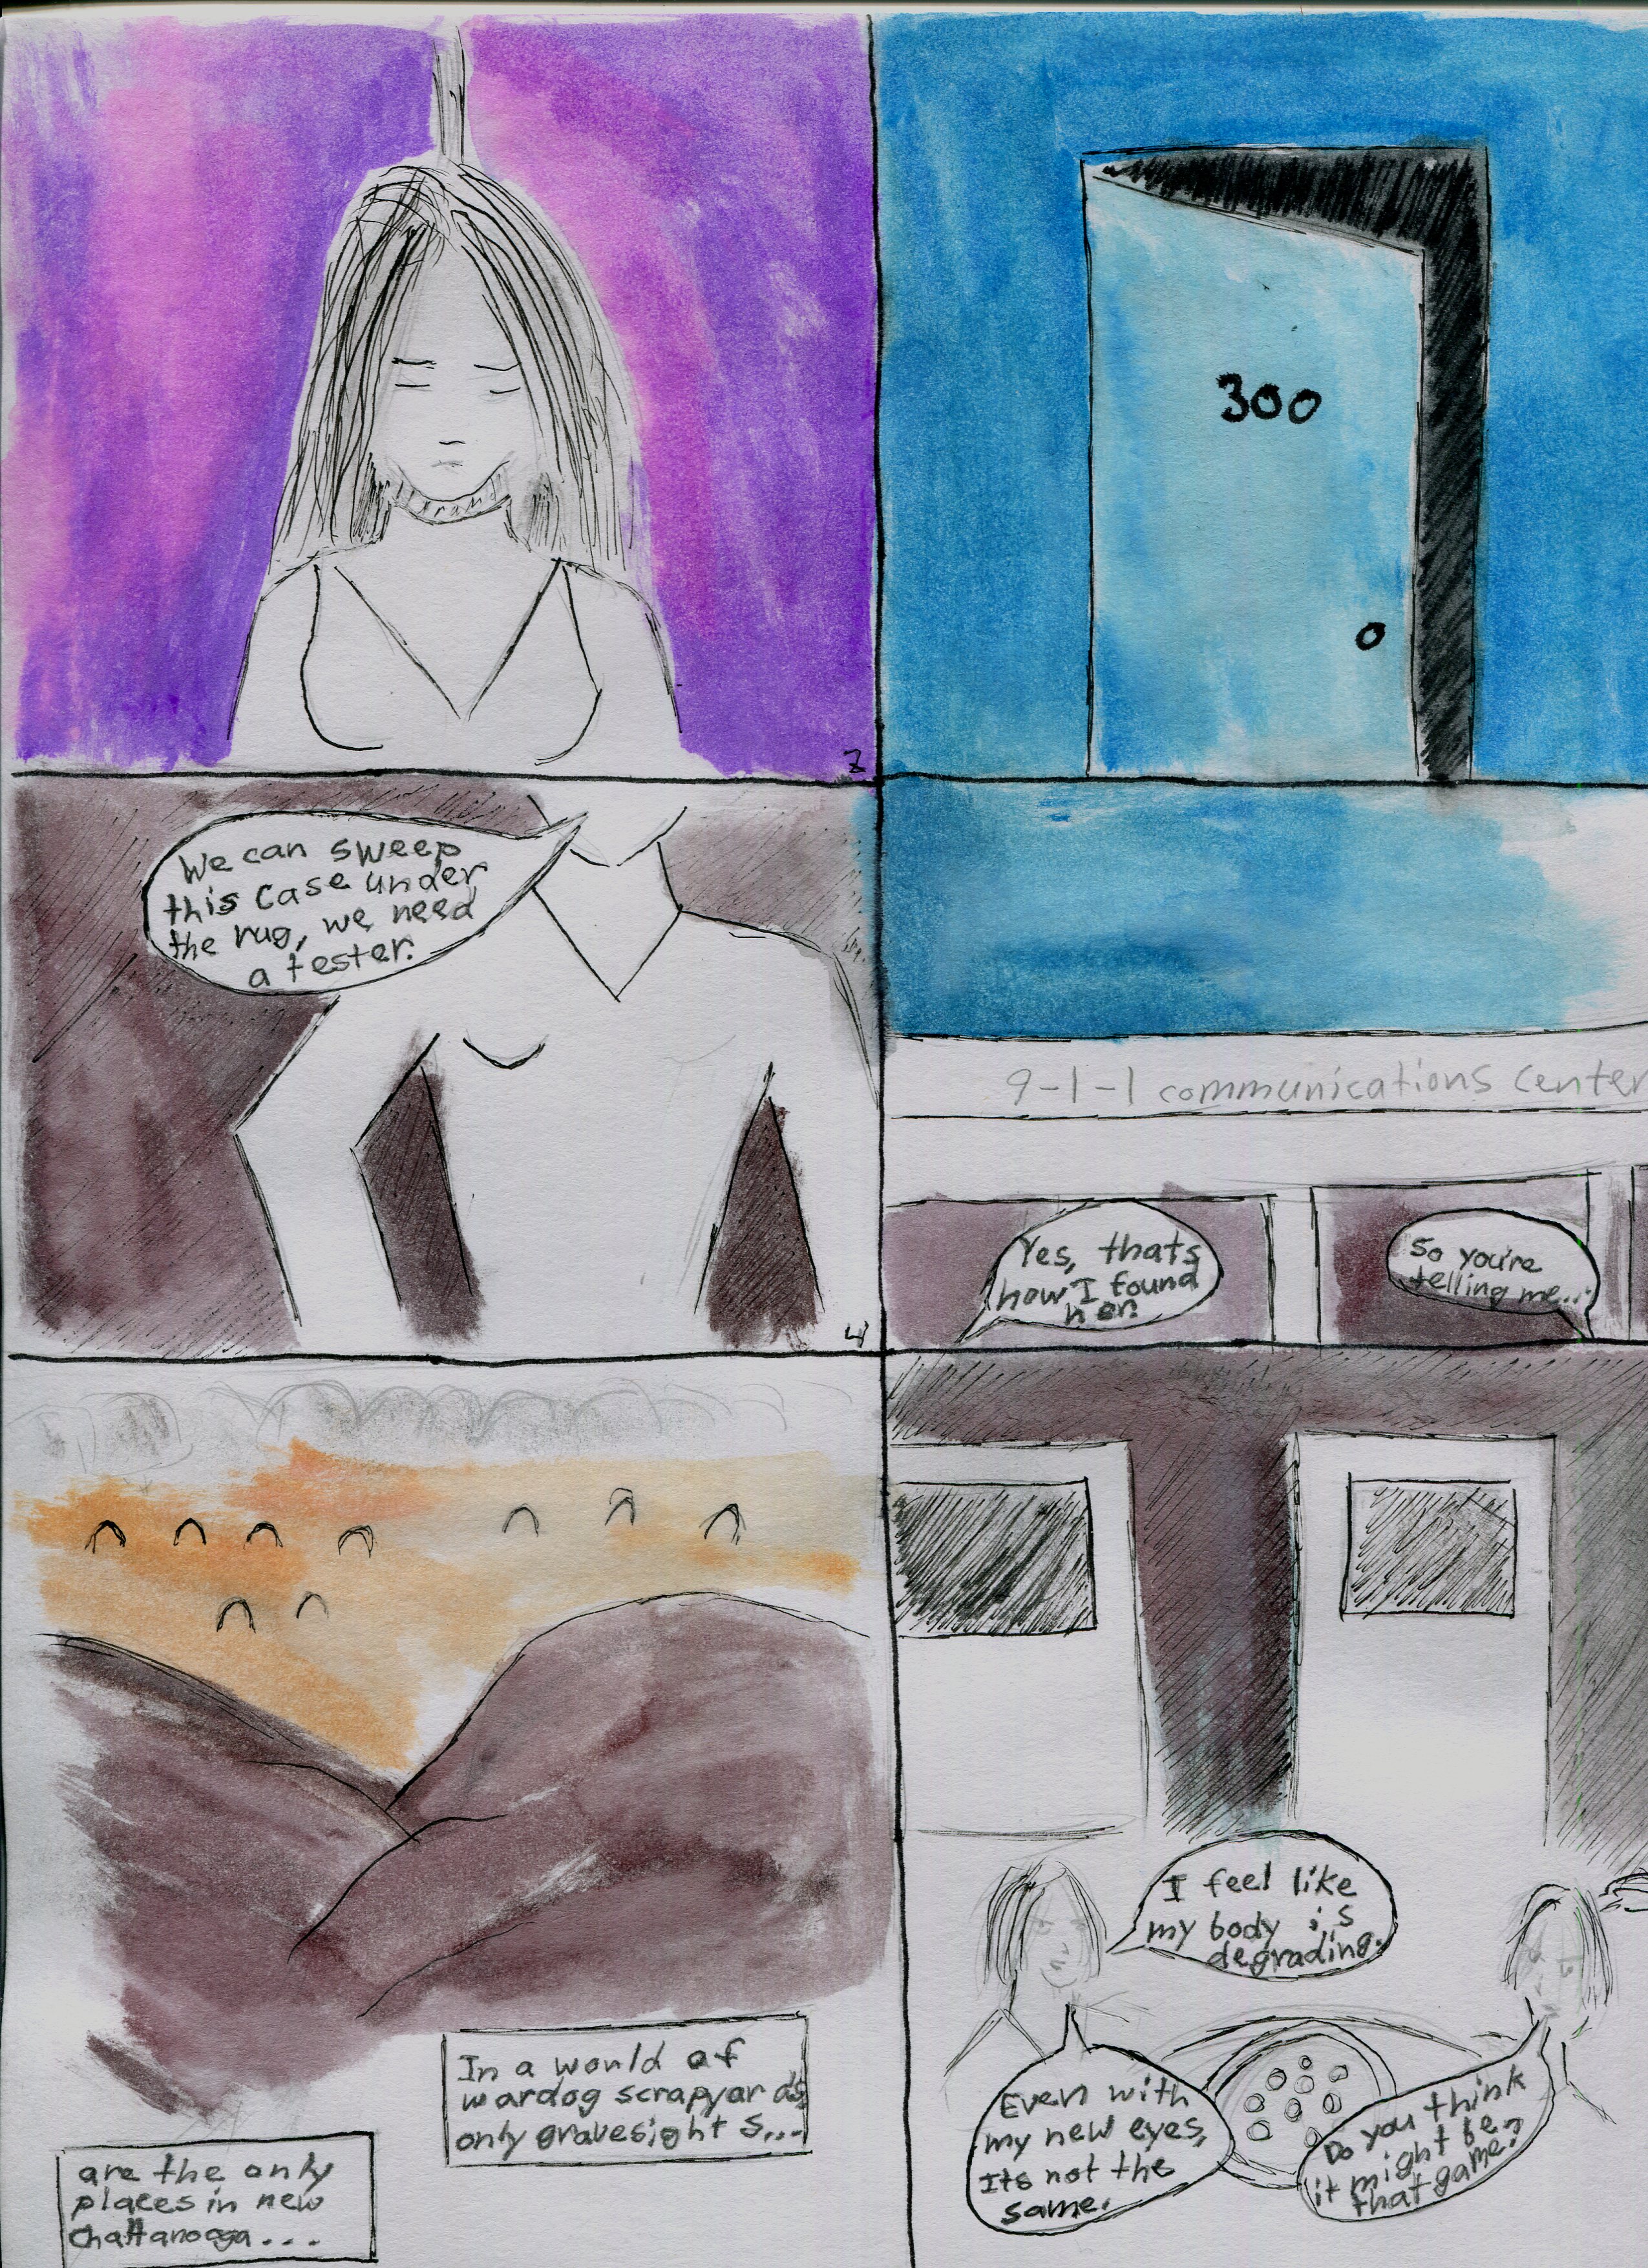 300
2
We can sweep
this case under
the rug, we need
a tester.
4
9-1-1 communications center
Yes, thats
how I found
her.
So you're
telling me...
In a world of
wardog scrapyards
only gravesight s...
are the only
places in new
Chattanooga...
I feel like
my body is
degrading.
Even with
my new eyes,
Its not the
same.
Do you think
it might be
that game?